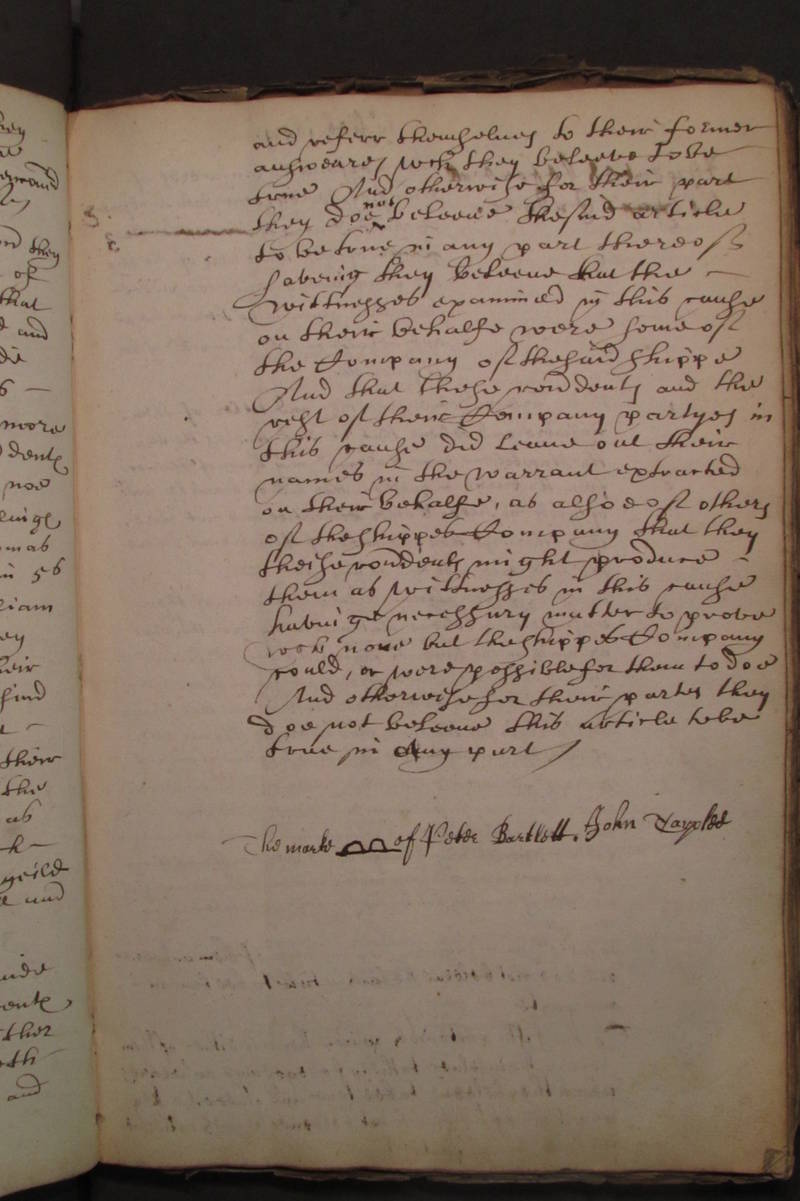 and referr themselues to their former
answeares wch they beleeve to be
true And otherwise for their part
they doe not beleeve the said article
to be true in any part thereof
saveing they beleeve that the
wittnesses examined in this cause
on their behalfe were some of
the Company of the said shippe
And that these rondents and the
rest of their Company partyes in
this cause did leaue out their
names in the warrant extracted
on their behalfe, as alsoe of others
of the shippes Company that they
theise rondents might produce
them as wittnesses in this cause
haveinge necessary matter to prove
wch none but the shippes Company
could, or were possible for them to doe
And otherwise for their partes they
doe not beleeve this article to be
true in any part
The marke of Peter Bartlett. John
ey
and
they
of
that
and
more
dents
noe
mas
in 56
liam
ey
heir
their
the
as
and
ther
and